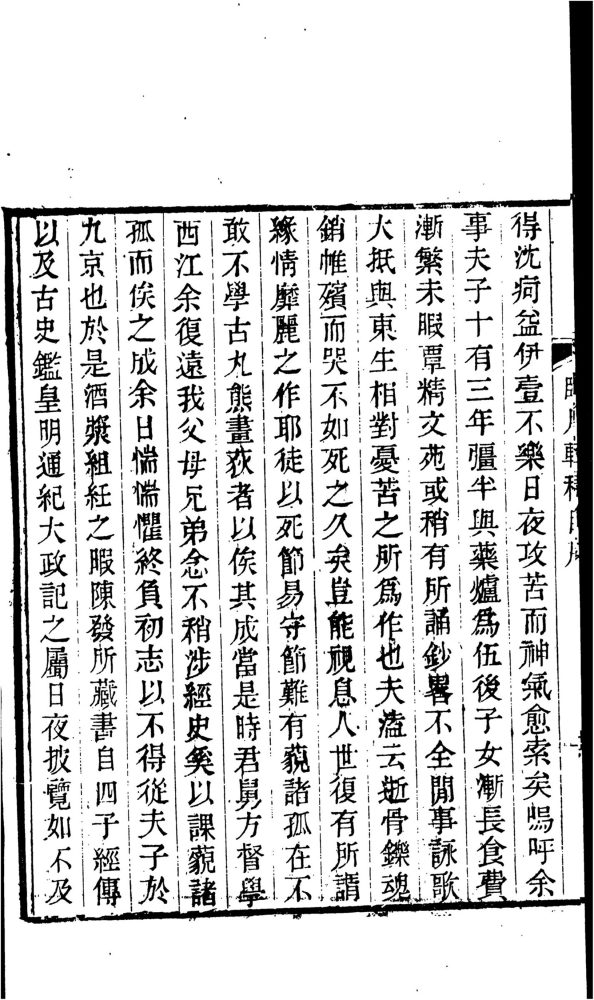 得沈痾益伊壹不樂日夜攻苦而神氣愈索矣嗚呼余
事夫子十有三年彊半與藥爐爲伍後子女漸長食費
漸繁未暇覃精文苑或稍有所誦鈔畧不全閒事詠歌
大抵與東生相對憂苦之所爲作也夫溘云逝骨鑠魂
銷帷殯而哭不如死之久矣豈能視息人世復有所謂
緣情靡麗之作耶徒以死節易守節難有藐諸孤在不
敢不學古丸熊畫荻者以俟其成當是時君舅方督學
西江余復遠我父母兄弟念不稍涉經史奚以課藐諸
孤而俟之成余日惴惴懼終負初志以不得從夫子於
九京也於是酒漿組紝之暇陳發所藏書自四子經傳
以及古史鑑皇明通紀大政記之屬日夜披覽如不及